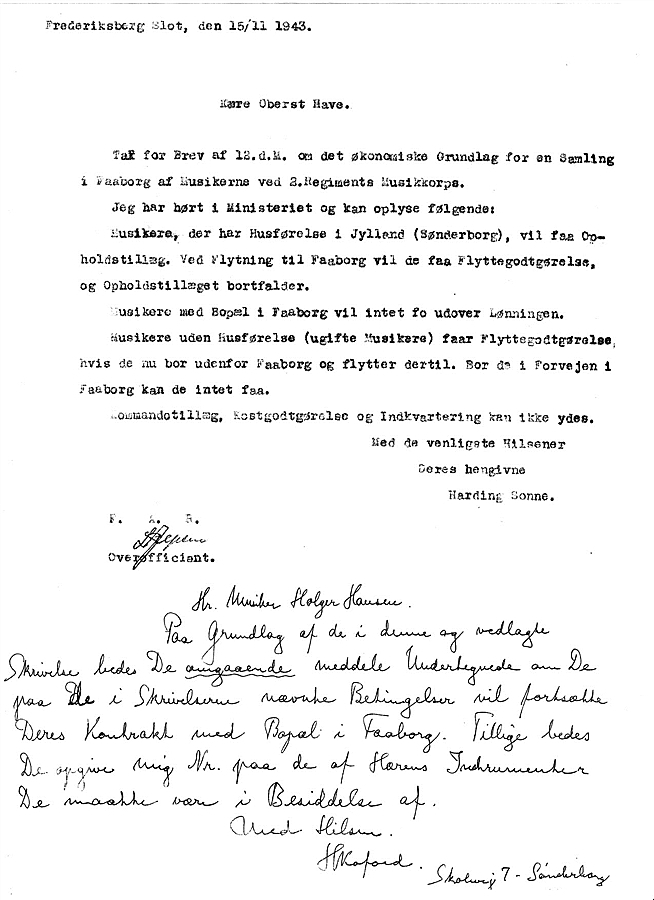 Frederiksborg Slot, den 15/11 1943.
Kære Oberst Have.
Tak for Brev af 12.d.M. om det økonomiske Grundlag for en Samling
i Faaborg af Musikerne ved 2.Regiments Musikkorps.
Jeg har hørt i Ministeriet og kan oplyse følgende:
Musikere, der har Husførelse i Jylland (Sønderborg), vil faa Op-
holdstillæg. Ved Flytning til Faaborg vil de faa Flyttegodtgørelse,
og Opholdstillæget bortfalder.
Musikere med Bopæl i Faaborg vil intet fo udover Lønningen.
Musikere uden Husførelse (ugifte Musikere) faar Flyttegodtgørelse,
hvis de nu bor udenfor Faaborg og flytter dertil. Bor de i Forvejen i
Faaborg kan de intet faa.
Kommandotillæg, Kostgodtgørelse og Indkvartering kan ikke ydes.
Med de venligste Hilsener
Deres hengivne
Harding Sonne.
F. A. R.
Overofficiant.
Hr. Musiker Holger Hansen.
Paa Grundlag af de i denne og vedlagte
Skrivelse bedes De omgaaende meddele Undertegnede om De
paa de i Skrivelserne nævnte Betingelser vil fortsætte
Deres Kontrakt med Bopæl i Faaborg. Tillige bedes
De opgive mig Nr. paa de af Hærens Instrumenter
De maatte være i Besiddelse af.
Med Hilsen.
HKofoed.
Skolevej 7 - Sønderborg